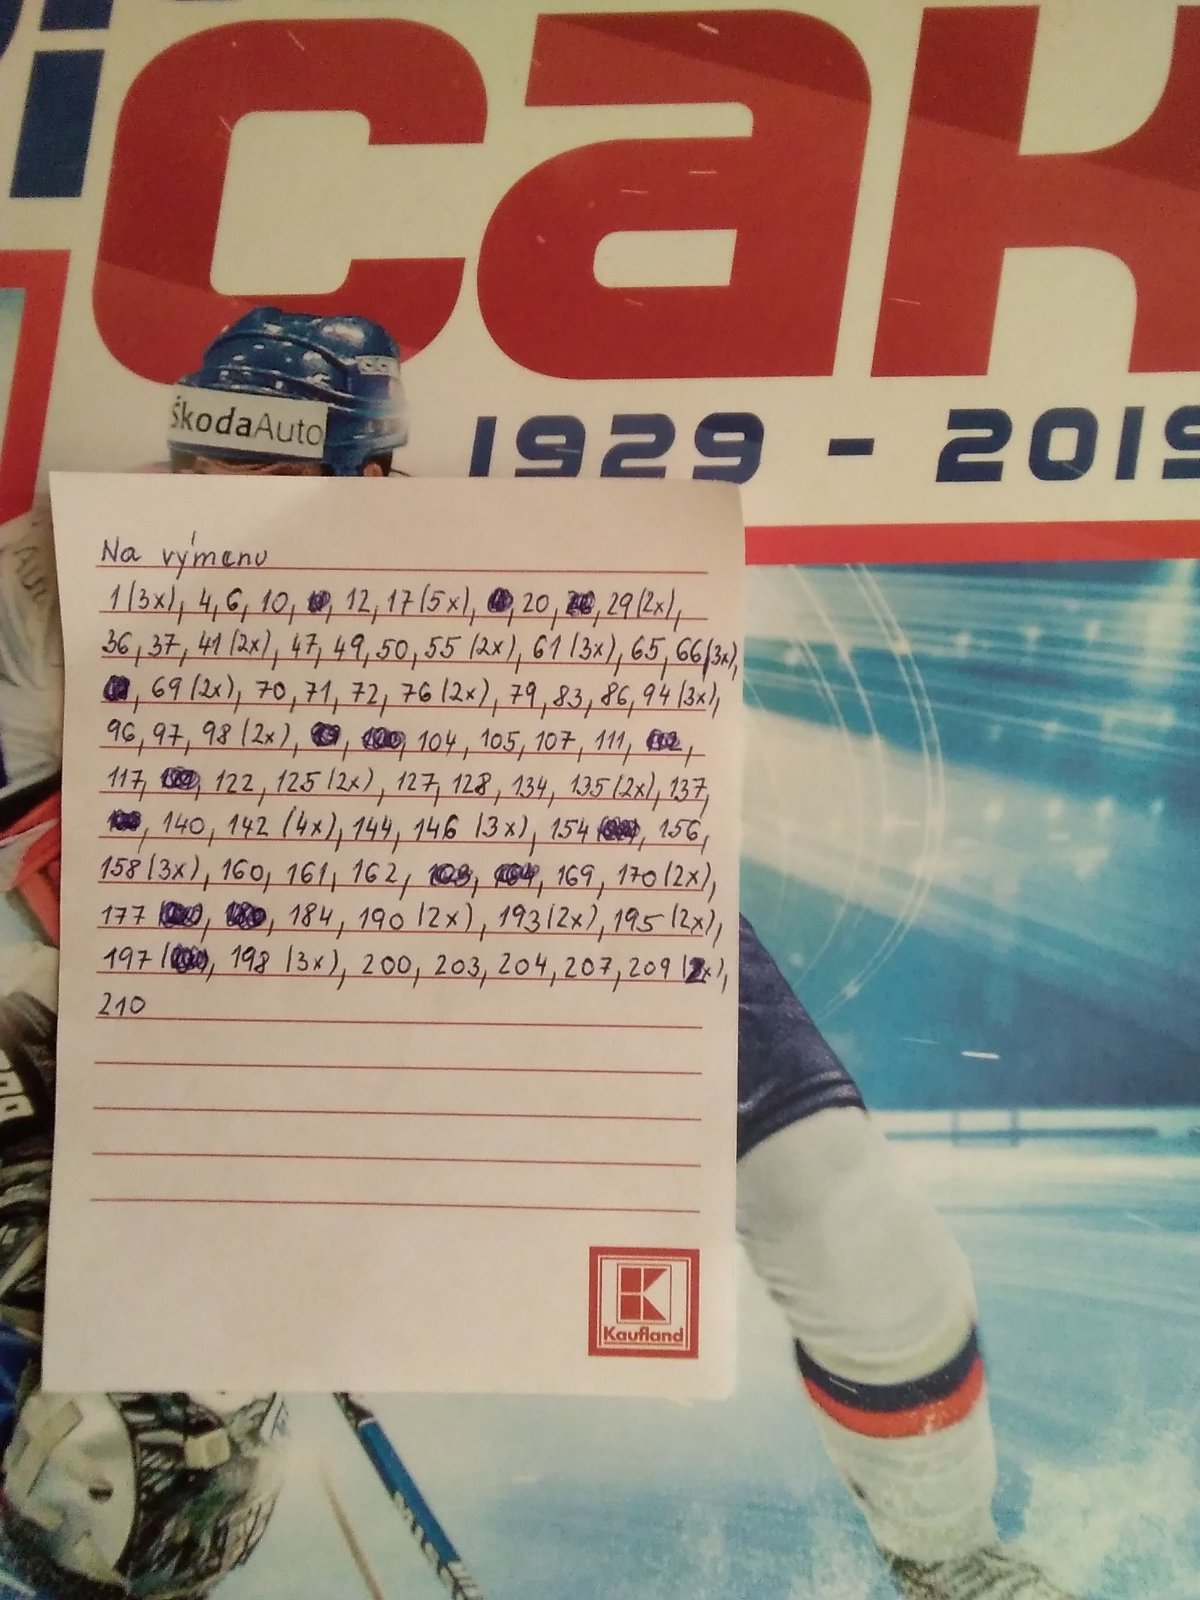 cak
ŠkodaAuto
1929 - 2019
Na výmenu
1 (3x), 4, 6, 10, 12, 17 (5x), 20, 29 (2x),
36, 37, 41 (2x), 47, 49, 50, 55 (2x), 61 (3x), 65, 66 (3x),
69 (2x), 70, 71, 72, 76 (2x), 79, 83, 86, 94 (3x),
96, 97, 98 (2x), 104, 105, 107, 111,
117, 122, 125 (2x), 127, 128, 134, 135 (2x), 137,
140, 142 (4x), 144, 146 (3x), 154, 156,
158 (3x), 160, 161, 162, 169, 170 (2x),
177, 184, 190 (2x), 193 (2x), 195 (2x),
197, 198 (3x), 200, 203, 204, 207, 209 (2x),
210
Kaufland